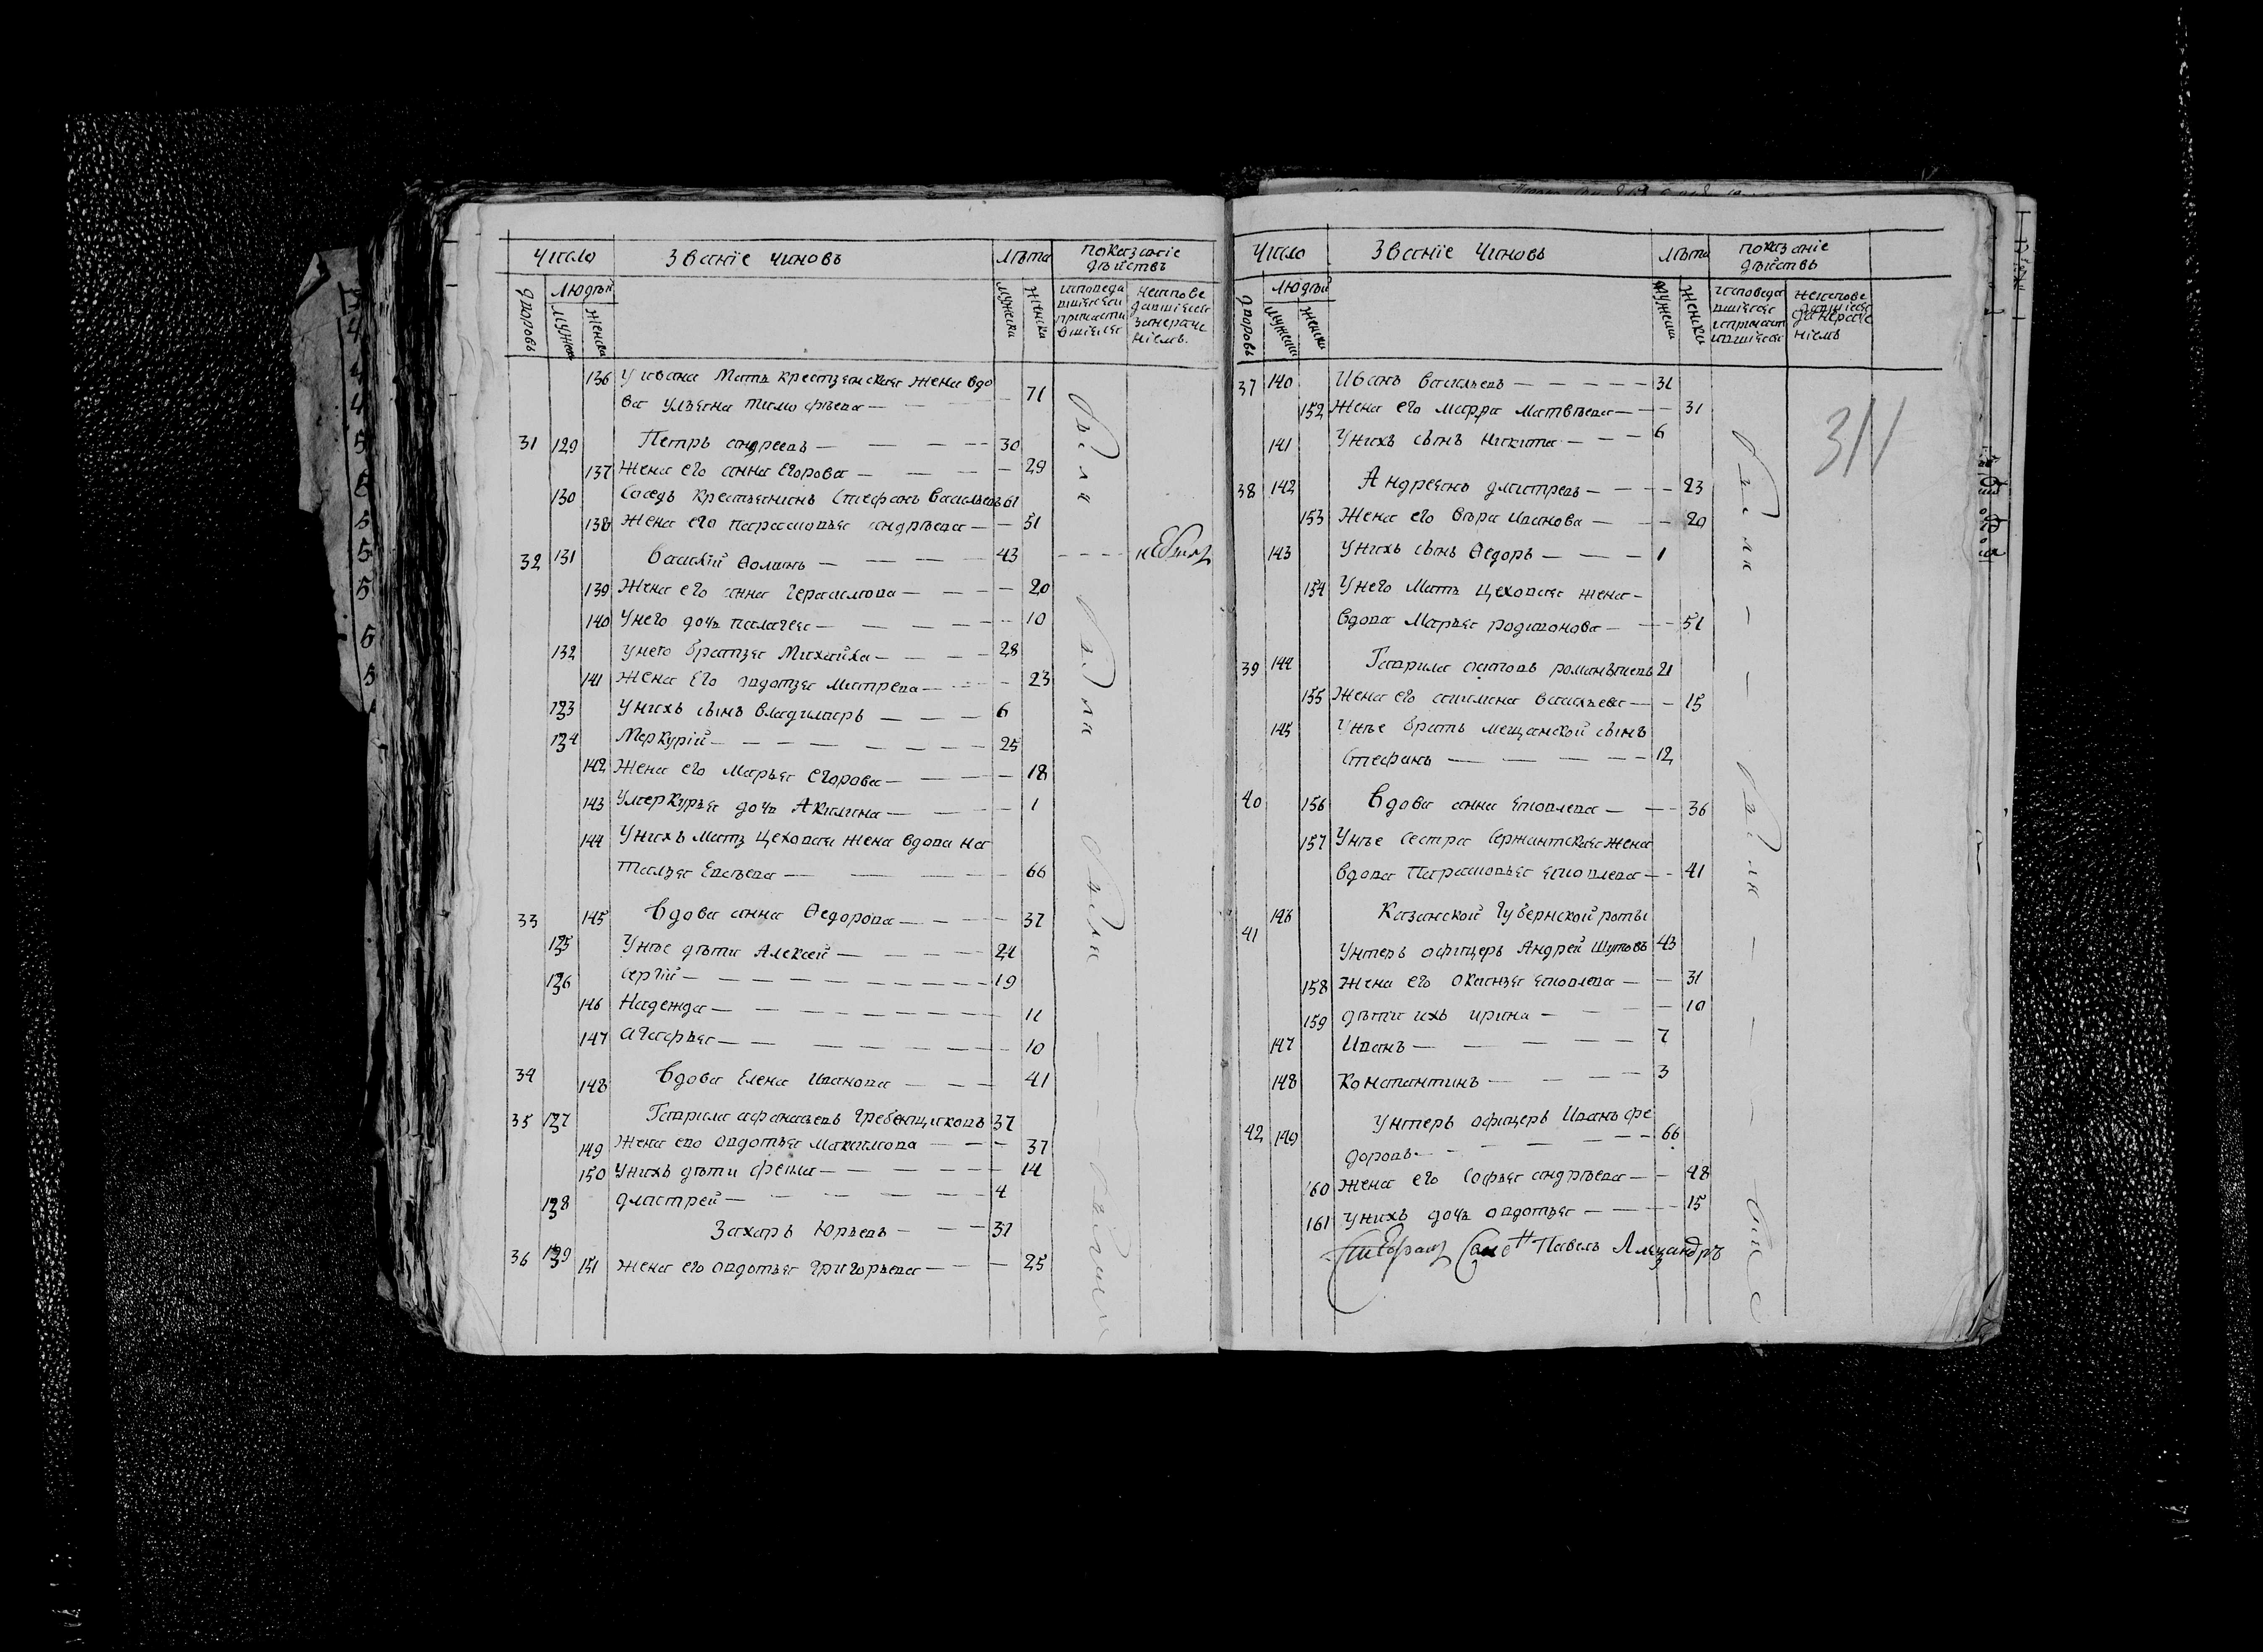 Число Званіе чиновъ Лѣта показаніе дѣйствъ
дворовъ людѣй мужеска женска мужеска женска исповеда вшіеся и причасти вшіеся неиспове давшіеся занераче ніемъ.
136 У ивана Мать крестьянская жена вдо
ва ульяна тимофѣева — 71
31 129 Петръ андреевъ — 30
137 Жена его анна Егорова — 29
130 Соседъ крестьянинъ Стефанъ Васильевъ 61
138 Жена его парасковья андрѣева — 51
32 131 Василій Ѳоминъ — 43
139 Жена его анна Герасимова — 20
140 Унего дочь палагея — 10
132 унего братья Михайла — 28
141 Жена его авдотья Митрева — 23
133 Унихъ сынъ владимиръ — 6
134 Меркурій — 25
142 Жена его Марья Егорова — 18
143 Умеркурья дочь Акилина — 1
144 Унихъ мать Цеховая жена вдова На
талья Евсѣева — 66
33 145 Вдова анна Ѳедорова — 37
135 Унѣе дѣти Алексей — 21
136 Сергій — 19
146 Надежда — 11
147 агафья — 10
34 148 Вдова Елена Иванова — 41
35 137 Гаврила афанасьевъ Гребенщиковъ 37
149 Жена его авдотья Максимова — 37
150 Унихъ дѣти фекла — 14
138 дмитрей — 4
Захаръ Юрьевъ — 31
36 139 151 Жена его авдотья Григорьева — 25
Число Званіе Чиновъ Лѣта показаніе дѣйствъ
дворовъ людѣй мужеска женска мужеска женска
311
37 140 Иванъ Васильевъ — 31
152 Жена его марфа матвѣева — 31
141 Унихъ сынъ никита — 6
38 142 Андреянъ дмитревъ — 23
153 Жена его вѣра иванова — 20
143 Унихъ сынъ Ѳедоръ — 1
154 Унего Мать цеховая жена —
вдова Марья родионова — 51
39 144 Гаврила романычевъ 21
155 Жена его Васильева — 15
145 Унѣе братъ мещанской сынъ
Стефанъ — 12
40 156 Вдова анна яковлева — 36
157 Унѣе сестра Сержантская жена
вдова Парасковья яковлева — 41
41 146 Казанской Губернской роты
Унтеръ офицеръ Андрей Шутовъ 43
158 Жена его яковлева — 31
159 дѣти ихъ ирина — 10
147 Иванъ — 7
148 Константинъ — 3
42 149 Унтеръ офицеръ Иванъ фе
доровъ — 66
160 Жена его Софья андрѣева — 48
161 Унихъ дочь авдотья — 15
Павелъ Александръ